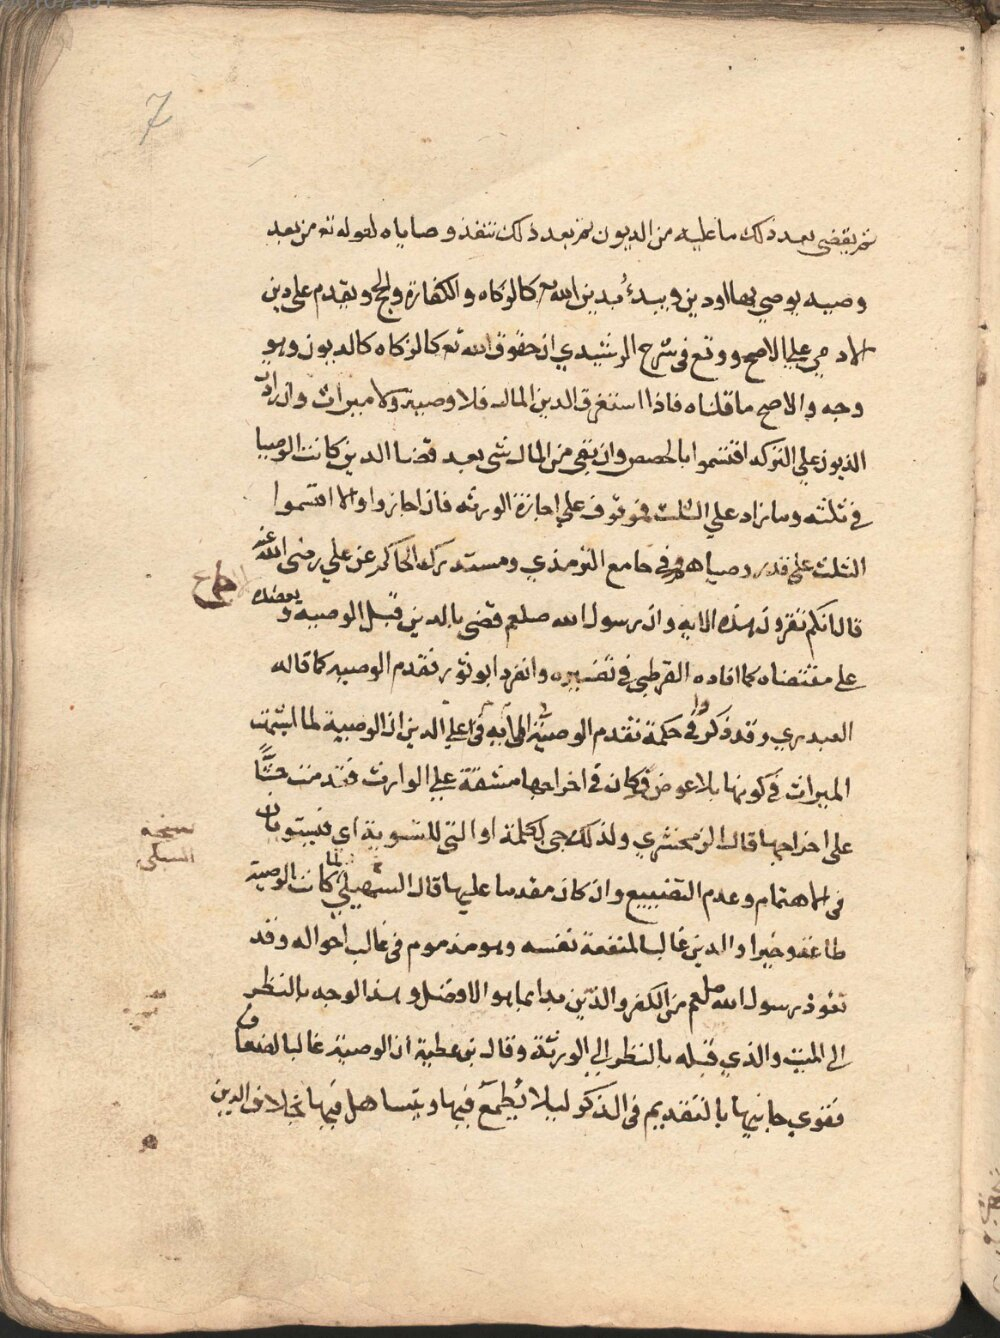 7
ثم يقضي بعد ذلك ما عليه من الديون ثم بعد ذلك تنفذ وصاياه لقوله تع من بعد
وصيه يوصي بها او دين ويبدء بدين الله تع كالزكاه والكفارة والحج ويقدم على دين
الادمي علي الاصح ووقع في شرح الرشيدي ان حقوق الله تع كالزكاه كالديون وهو
وجه والاصح ما قلناه فاذا استغرق الدين المال فلا وصية ولا ميراث وان زادت
الديون علي التركه اقتسموا بالحصص وان بقى من المال شي بعد قضا الدين كانت الوصيا
في ثلثه وما زاد علي الثلث فموقوف علي اجازة الورثه فان اجازوا والا اقتسموا
الثلث على قدر وصياهم وفي جامع الترمذي ومستدرك الحاكم عن علي رضى الله عنه
قال انكم تقرون هذه الايه وان رسول الله صلعم قضى بالدين قبل الوصية و
علي مقتضاه كما افاده القرطبي في تفسيره وانفرد ابو ثور بتقدم الوصيه كما قاله
العبدري وقد ذكروا في حكمة تقدم الوصية في الايه على الدين ان الوصية لما اشبهت
الميراث في كونها بلا عوض فكان في اخراجها مشقة علي الوارث فقدمت حثًّا
على اخراجها قال الزمخشري ولذلك جي بكلمة او التي للتسوية اي فيستويان
في الاهتمام وعدم التضييع وان كان مقدما عليها قال السهيلي لما كانت الوصية
طاعة وخيرا والدين غالبا لمنفعة نفسه وهو مذموم في غالب احواله وقد
تعوذ رسول الله صلعم من الكفر والدّين بدا بما هو الافضل وهذا الوجه بالنظر
الي الميت والذي قبله بالنظر الي الورثة وقال بن عطية ان الوصية غالبا لضعاف
فقوي جانبها بالتقديم في الذكر ليلا يُطمع فيها ويتساهل فيها بخلاف الدين
نسخه
السبكى